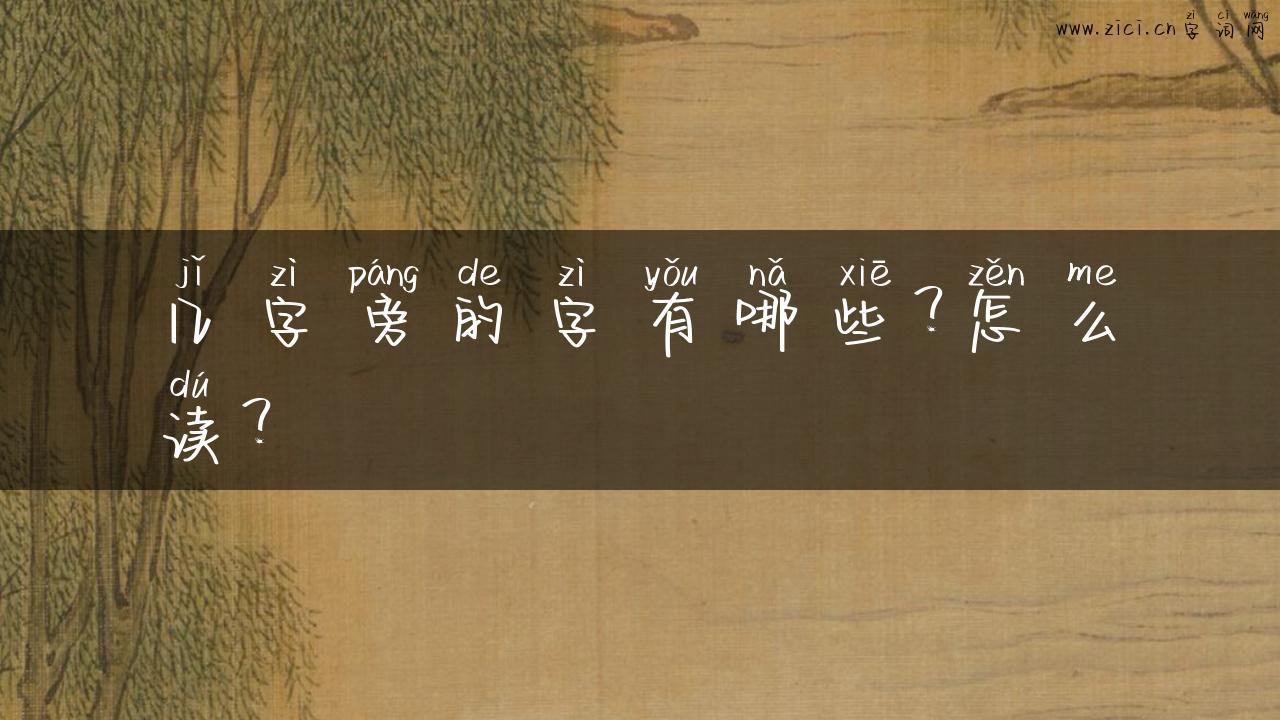 zì cí wǎng
www.zici.cn字词网
jǐ zì páng de zì yǒu nǎ xiē zěn me
几字旁的字有哪些?怎么
dú
读?